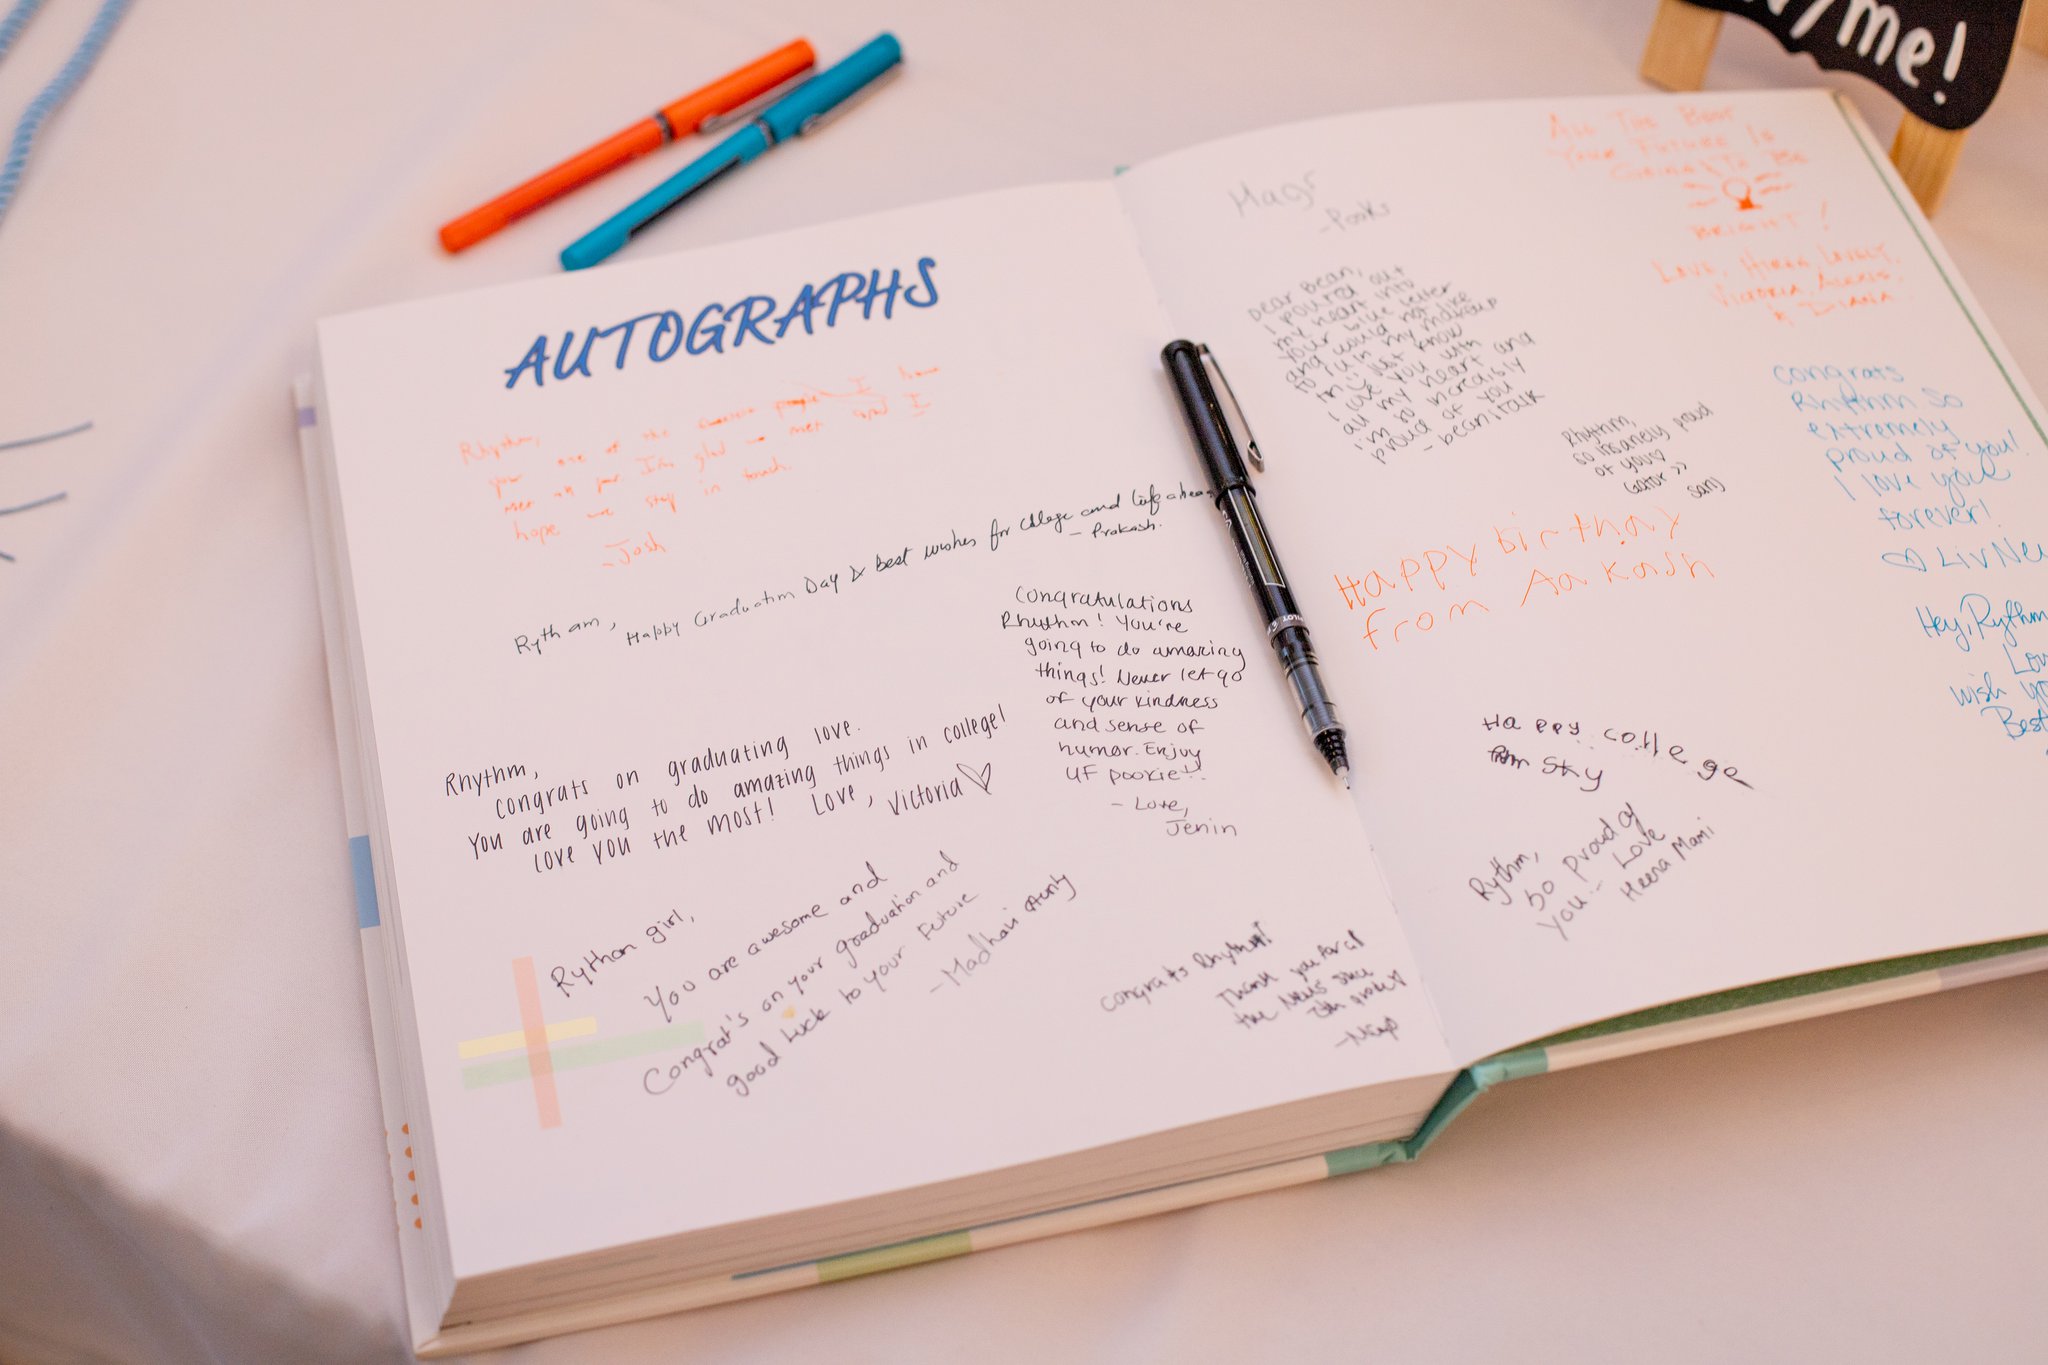 /me!
AUTOGRAPHS
Rhythm,
your one of the people I have
met all year I'm glad we met and I
hope we stay in touch.
- Josh
Rytham, Happy Graduation Day & Best wishes for College and Life ahead
- Prakash.
Congratulations
Rhythm! You're
going to do amazing
things! Never let go
of your kindness
and sense of
humor. Enjoy
UF pookie!!
- Love,
Jenin
Rhythm,
congrats on graduating love.
You are going to do amazing things in college!
Love you the most! Love, Victoria ♡
Rython girl,
You are awesome and
Congrat's on your graduation and
good luck to your Future
- Madhavi Aunty
Congrats Rhythm!
Thank you for all
the
- Pooks
Dear Bean,
I poured out
my heart into
your blue letter
and would not like
to ruin my makeup
Just know
I love you with
all my heart and
I'm so incredibly
proud of you
- beanstalk
Rhythm,
so insanely proud
of you ♡
Gator
All The Best
Your Future Is
Going To Be
BRIGHT!
Love, Lovely,
Victoria, Alexis
& Diana
Congrats
Rhythm. So
extremely
proud of you!
I love you
forever!
♡ Liv
Happy birthday
from Aakash
Hey, Rythm
wish
Best
Happy college
Sky
Rythm,
So proud of
you - Love
Heena Mami